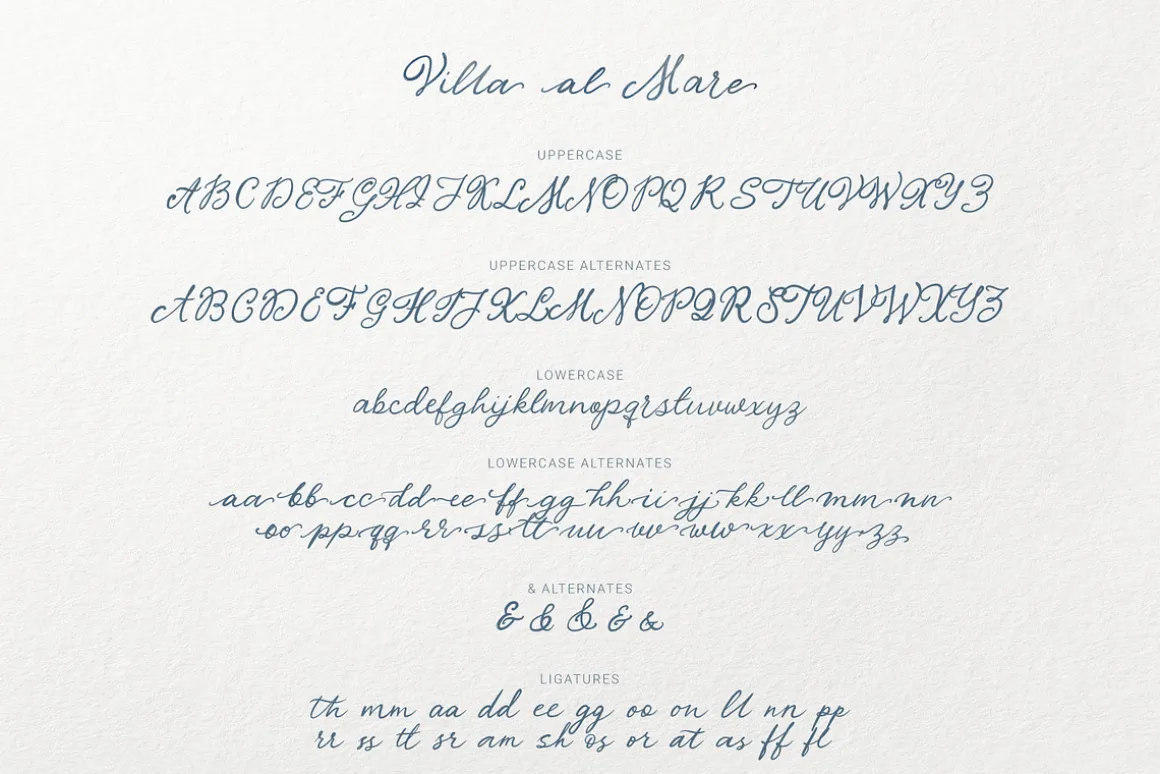 Villa al Mare
UPPERCASE
ABCDEFGHIJKLMNOPQRSTUVWXYZ
UPPERCASE ALTERNATES
ABCDEFGHIJKLMNOPQRSTUVWXYZ
LOWERCASE
abcdefghijklmnopqrstuvwxyz
LOWERCASE ALTERNATES
aa bb cc dd ee ff gg hh ii jj kk ll mm nn
oo pp qq rr ss tt uu vv ww xx yy zz
& ALTERNATES
& & & & &
LIGATURES
th mm aa dd ee gg oo on ll nn pp
rr ss tt sr am sh os or at as ff fl